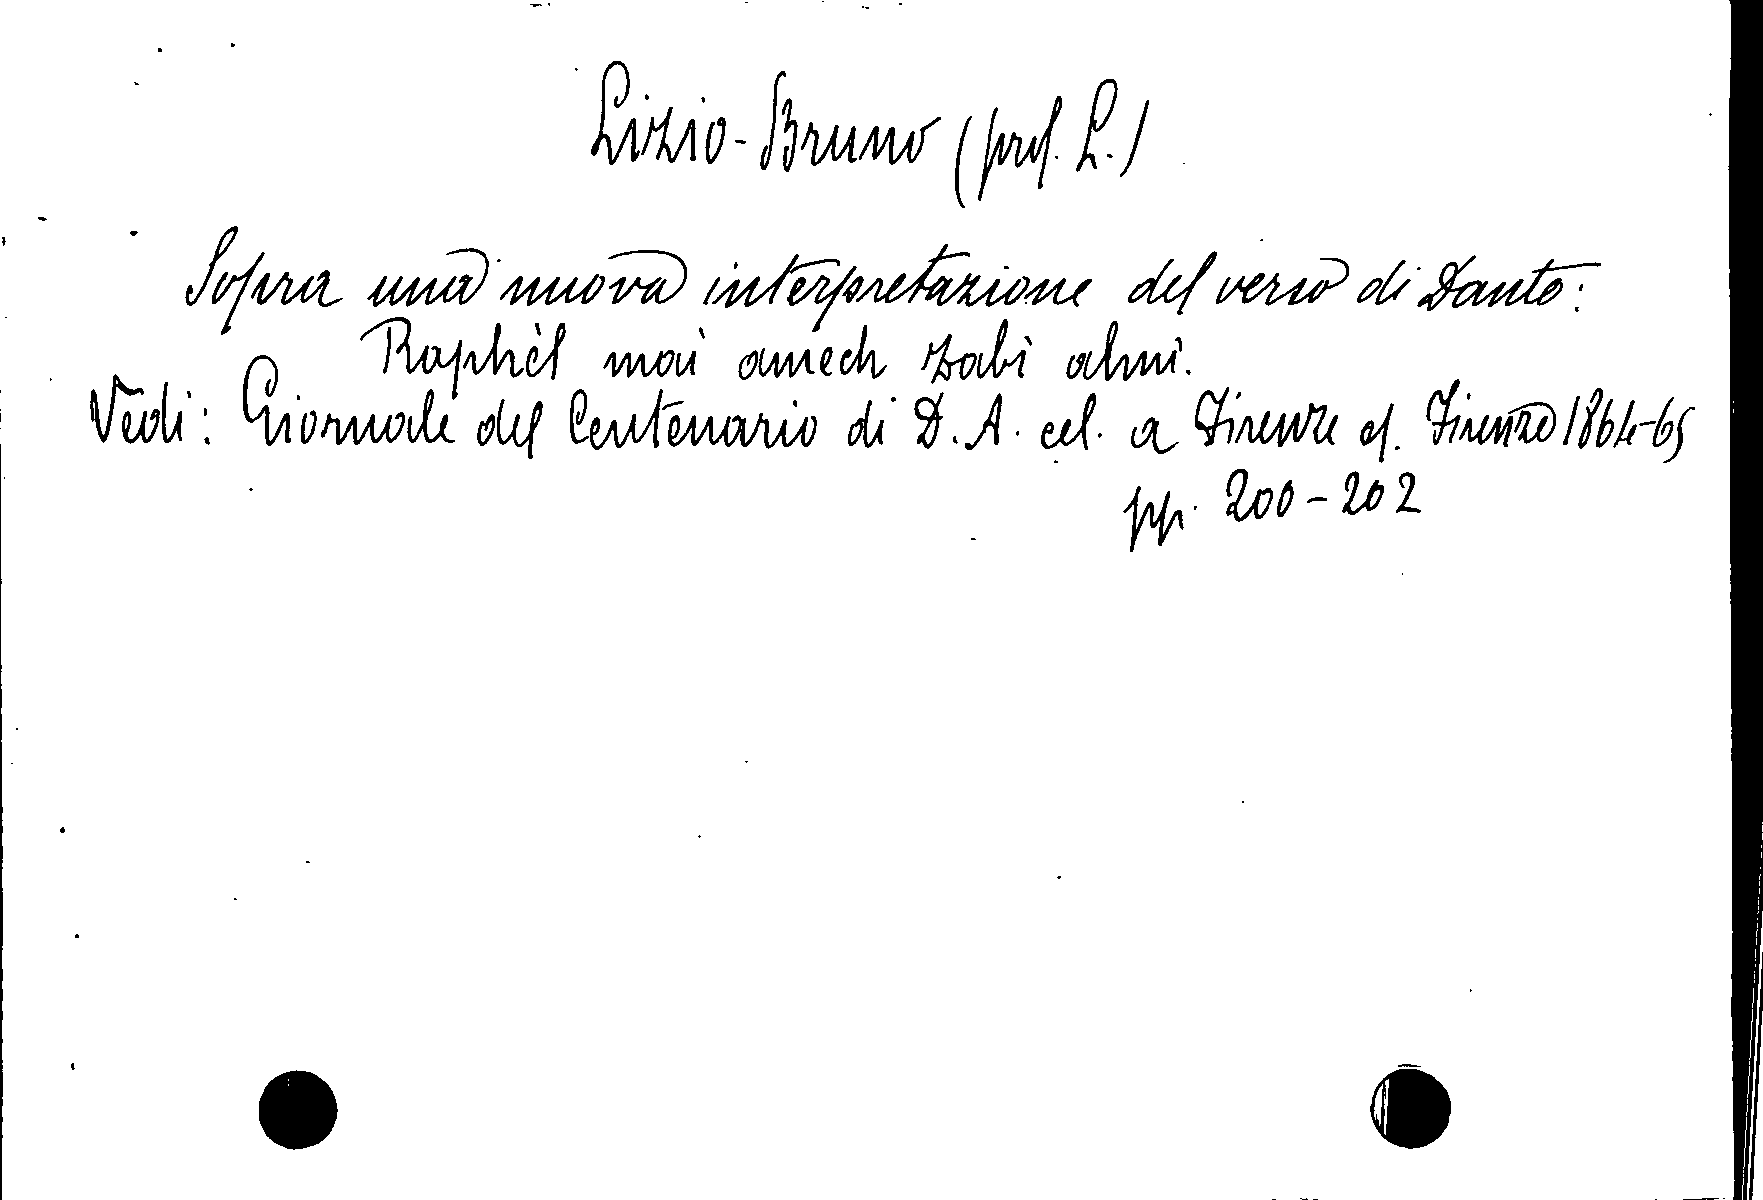 Lizio-Bruno (prof. L.)
Sopra una nuova interpretazione del verso di Dante:
Raphèl mai amech zabì almi.
Vedi: Giornale del Centenario di D. A. cel. a Firenze ef. Firenze 1864-65
pp. 200-202